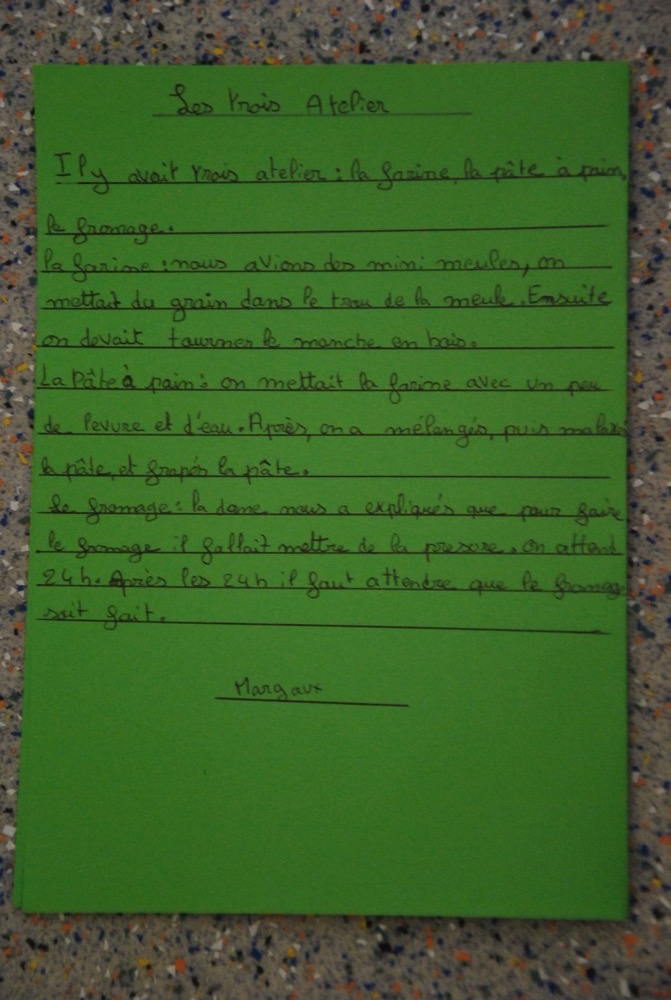 Les trois Atelier
Il y avait trois atelier : la farine, la pâte à pain,
le fromage.
la farine : nous avions des mini meules, on
mettait du grain dans le trou de la meule. Ensuite
on devait tourner le manche en bois.
La Pâte à pain : on mettait la farine avec un peu
de levure et d'eau. Après, on a mélangés, puis malaxé
la pâte, et frapés la pâte.
Le fromage : la dame nous a expliqués que pour faire
le fromage il fallait mettre de la presure. on attend
24h. Après les 24h il faut attendre que le fromage
soit fait.
Margaux